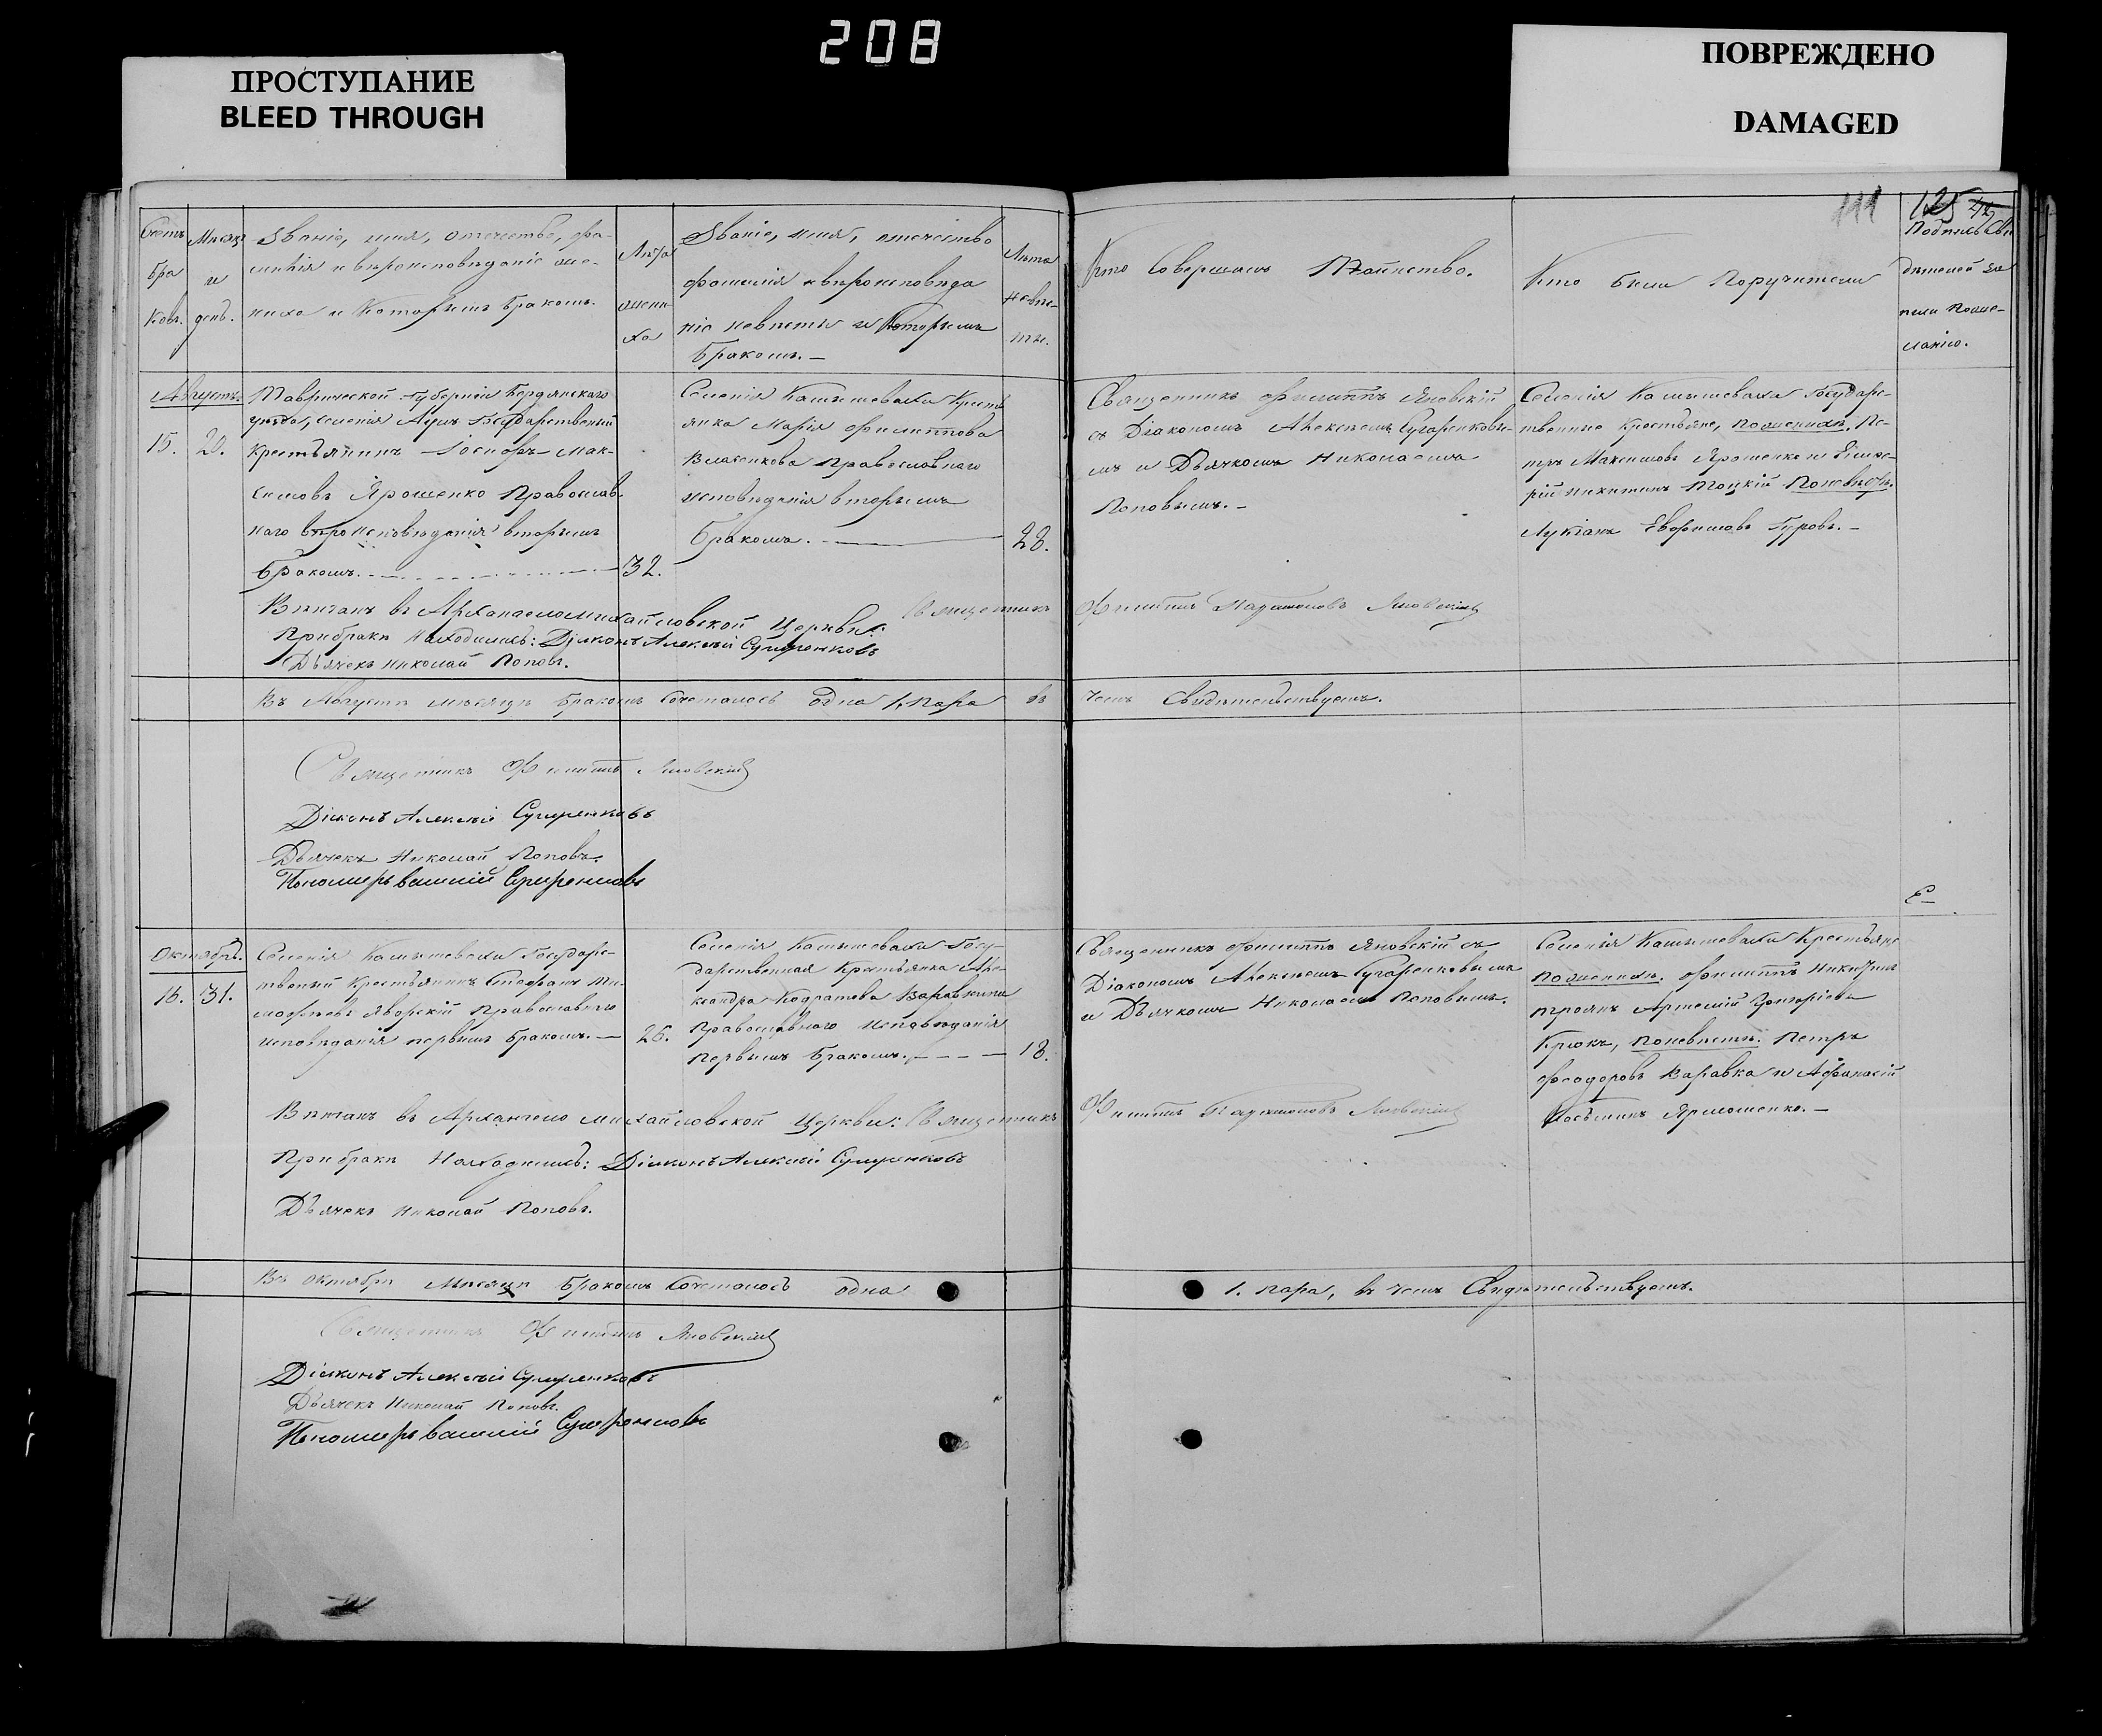 208
ПРОСТУПАНИЕ
BLEED THROUGH
ПОВРЕЖДЕНО
DAMAGED
111
125
Счетъ бра ковъ.
Месяцъ и день.
Званіе, имя, отечество, фа-
милія и вѣроисповѣданіе же-
ниха и которымъ бракомъ.
Лѣта
жени-
ха
Званіе, имя, отечество
фамилія и вѣроисповѣда
ніе невѣсты и которымъ
бракомъ. —
Лѣта
невѣс-
ты.
Кто совершалъ Таинство.
Кто были Поручители
Подпись сви
дѣтелей за
писи по же-
ланію.
Августъ.
15.
20.
Таврической Губерніи Бердянскаго
уѣзда, селенія Государственный
Крестьянинъ Іосифъ Мак-
симовъ Ярошенко Православ.
наго вѣроисповѣданія вторымъ
бракомъ.
32.
Селенія Камышевахи Кресть
янка Марія Филиппова
Власенкова Православнаго
исповѣданія вторымъ
бракомъ.
28.
Священникъ Филиппъ Яновскій
съ Діакономъ Алексѣемъ
мъ и Дьячкомъ Николаемъ
Поповымъ. —
Селенія Камышевахи Государс-
твенные крестьяне, по женихѣ, Пе-
тръ Максимовъ Ярошенко и
рій Никитинъ Троцкій По невѣстѣ.
Лукіанъ Евфимовъ Гуровъ. —
Вѣнчанъ въ Архангеломихайловской Церкви: Священникъ Филиппъ Яновскій
При бракѣ находились: Діяконъ Алексѣй
Дьячекъ Николай Поповъ.
Въ Августѣ мѣсяцѣ бракомъ сочеталось одна 1, пара въ чемъ свидѣтельствуемъ.
Священникъ Филиппъ Яновскій
Діяконъ Алексѣй
Дьячекъ Николай Поповъ.
Пономарь Василій
Октябрь.
16.
31.
Селенія Камышевахи Государс-
твеный Крестьянинъ Стефанъ Ти-
мофѣевъ Яворскій Православнаго
исповѣданія первымъ бракомъ. —
26.
Селенія Камышевахи Госу-
дарственная Крестьянка Але-
ксандра Кодратова Варавкина
Православнаго исповѣданія
первымъ бракомъ.
18.
Священникъ Филиппъ Яновскій съ
Діакономъ Алексѣемъ
и Дьячкомъ Николаемъ Поповымъ.
Селенія Камышевахи Крестьяне
По женихѣ. Филиппъ Никитинъ
Троянъ Артемій Григоріевъ
Крюкъ, По невѣстѣ. Петръ
Феодоровъ Варавка и Афанасій
Косьминъ Ярмошенко. —
Вѣнчанъ въ Архангело михайловской Церкви: Священникъ Филиппъ Яновскій
При бракѣ Находились: Діяконъ Алексѣй
Дьячекъ Николай Поповъ.
Въ октябрѣ Мѣсяцѣ бракомъ сочеталось одна 1. пара, въ чемъ Свидѣтельствуемъ.
Священникъ Филиппъ Яновскій
Діяконъ Алексѣй
Дьячекъ Николай Поповъ.
Пономарь Василій